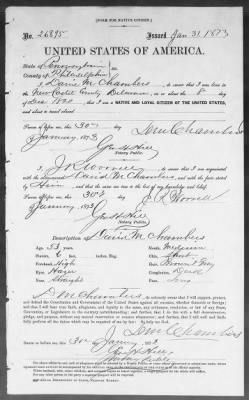 [FORM FOR NATIVE CITIZEN.]
No. 26895 Issued Jan 31, 1873
UNITED STATES OF AMERICA.
State of Pennsylvania
County of Philadelphia
I, David M Chambers, do swear that I was born in the
New Castle County Delaware, on or about the 8 day
of Dec 1820; that I am a NATIVE AND LOYAL CITIZEN OF THE UNITED STATES,
and about to travel abroad
Sworn before me, this 30th day
of January, 1873
D M Chambers
Geo H Hill
Notary Public.
do swear that I am acquainted
with the David M Chambers, and with the facts stated by
Him, and that the same are true to the best of my knowledge and belief.
Sworn before me, this 30th day
of January, 1873
Geo H Hill
Notary Public.
Description of David M Chambers
Age, 53 years. Mouth, Medium
Stature, 6 feet inches, Eng. Chin,
Forehead, High Hair, Brown & Grey
Eyes, Hazel Complexion, Dark
Nose, Straight Face, Long
I, D M Chambers, do solemnly swear that I will support, protect,
and defend the Constitution and Government of the United States against all enemies, whether domestic or foreign; and
that I will bear true faith, allegiance, and loyalty to the same, any ordinance, resolution, or law of any State,
Convention, or Legislature to the contrary notwithstanding; and further, that I do this with a full determination,
pledge, and purpose, without any mental reservation or evasion whatsoever; and further, that I will well and faithfully
perform all the duties which may be required of me by law: So help me God.
D M Chambers
Sworn to before me, this 30
day of January, 1873
Geo H Hill
Notary Public